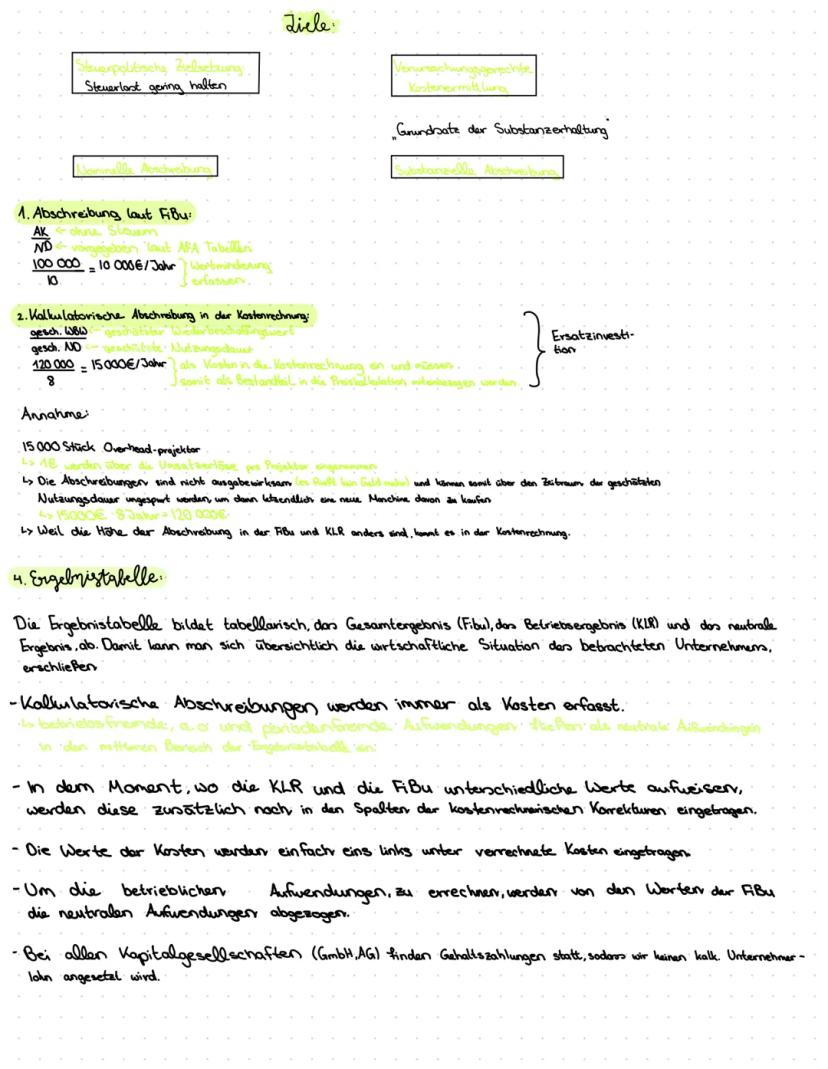 Ziele:
Steuerpolitische Zielsetzung:
Steuerlast gering halten
Verursachungsgerechte
Kostenermittlung
"Grundsatz der Substanzerhaltung"
Nominelle Abschreibung
Substanzielle Abschreibung
1. Abschreibung laut FiBu:
AK ← ohne Steuern
ND ← vorgegeben laut AFA Tabellen
100 000 = 10 000€/Jahr } Wertminderung
10 erfassen
2. Kalkulatorische Abschreibung in der Kostenrechnung:
gesch. WBW ← geschätzter Wiederbeschaffungswert
gesch. ND ← geschätzte Nutzungsdauer
120 000 = 15 000€/Jahr } als Kosten in die Kostenrechnung ein und müssen
8 somit als Bestandteil in die Preiskalkulation miteinbezogen werden.
Ersatzinvesti-
tion
Annahme:
15 000 Stück Overhead-projektor
↳ 1€ werden über die Umsatzerlöse pro Projektor eingenommen
↳ Die Abschreibungen sind nicht ausgabewirksam (es fließt kein Geld mehr) und können somit über den Zeitraum der geschätzten
Nutzungsdauer angespart werden, um dann letzendlich eine neue Maschine davon zu kaufen
↳ 15000€ · 8 Jahr = 120 000€
↳ Weil die Höhe der Abschreibung in der FiBu und KLR anders sind, kommt es in der Kostenrechnung.
4. Ergebnistabelle:
Die Ergebnistabelle bildet tabellarisch, das Gesamtergebnis (Fibu), das Betriebsergebnis (KLR) und das neutrale
Ergebnis, ab. Damit kann man sich übersichtlich die wirtschaftliche Situation des betrachteten Unternehmens,
erschließen
- Kalkulatorische Abschreibungen, werden immer als Kosten erfasst.
↳ betriebsfremde, a.o und periodenfremde Aufwendungen fließen als neutrale Aufwendungen
in den mittleren Bereich der Ergebnistabelle ein.
- In dem Moment, wo die KLR und die FiBu unterschiedliche Werte aufweisen,
werden diese zusätzlich noch in den Spalten der kostenrechnerischen Korrekturen eingetragen.
- Die Werte der Kosten werden einfach eins links unter verrechnete Kosten eingetragen
- Um die betrieblichen Aufwendungen, zu errechnen, werden von den Werten der FiBu
die neutralen Aufwendungen abgezogen.
- Bei allen Kapitalgesellschaften (GmbH, AG) finden Gehaltszahlungen statt, sodass wir keinen kalk. Unternehmer-
lohn angesetzt wird.